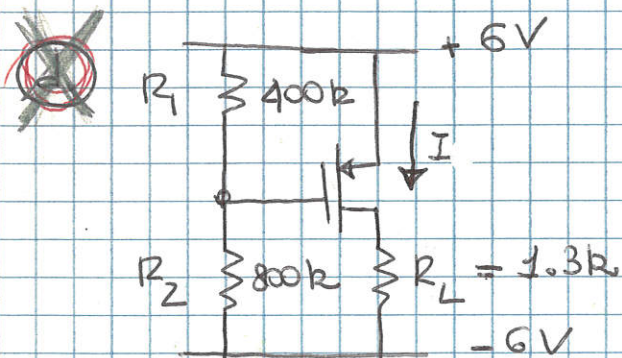 + 6V
R1 400k
I
R2 800k RL = 1.3k
- 6V